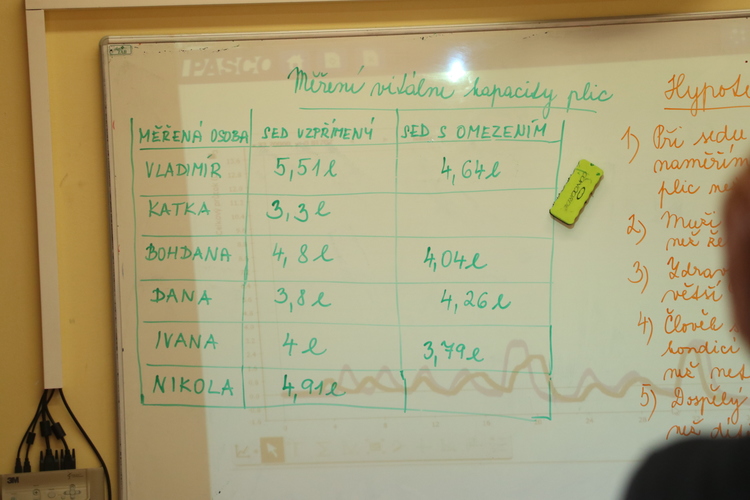 PASCO
Měření vitální kapacity plic
MĚŘENÁ OSOBA SED VZPŘÍMENÝ SED S OMEZENÍM
VLADIMÍR 5,51l 4,64l
KATKA 3,3l
BOHDANA 4,8l 4,04l
DANA 3,8l 4,26l
IVANA 4l 3,79l
NIKOLA 4,91l
Hypote
1) Při sedu
naměřím
plic ne
2) Muži
než že
3) Zdrav
větší
4) Člověk
kondicí
než net
5) Dospělý
než dí
3M